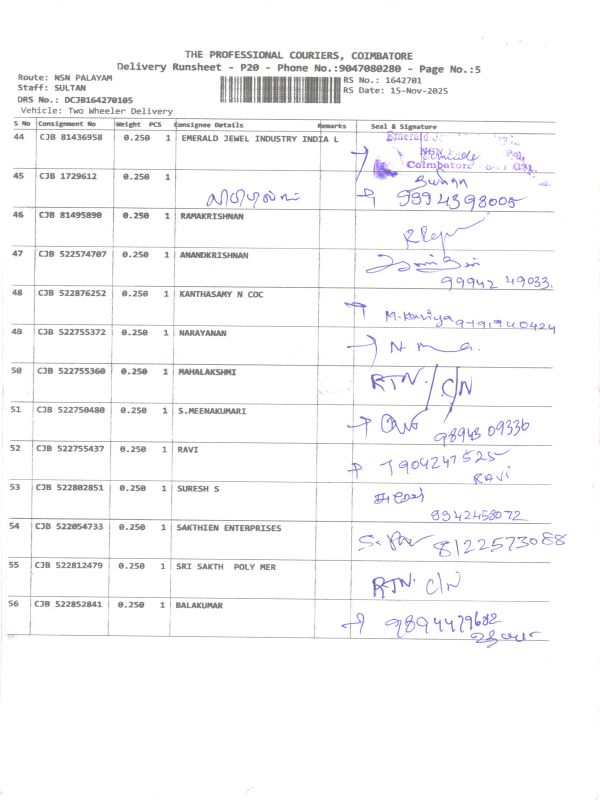 THE PROFESSIONAL COURIERS, COIMBATORE
Delivery Runsheet - P20 - Phone No.:9047080280 - Page No.:5
Route: NSN PALAYAM
RS No.: 1642701
Staff: SULTAN
RS Date: 15-Nov-2025
DRS No.: DCJB164270105
Vehicle: Two Wheeler Delivery
S No Consignment No Weight PCS Consignee Details Remarks Seal & Signature
44 CJB 81436958 0.250 1 EMERALD JEWEL INDUSTRY INDIA L
Emerald
Coimbatore
45 CJB 1729612 0.250 1
9994398005
46 CJB 81495890 0.250 1 RAMAKRISHNAN
47 CJB 522574707 0.250 1 ANANDKRISHNAN
99942 49033
48 CJB 522876252 0.250 1 KANTHASAMY N COC
49 CJB 522755372 0.250 1 NARAYANAN
50 CJB 522755360 0.250 1 MAHALAKSHMI RTN. C/N
51 CJB 522750480 0.250 1 S.MEENAKUMARI
52 CJB 522755437 0.250 1 RAVI
RAVI
53 CJB 522802851 0.250 1 SURESH S
9942458072
54 CJB 522054733 0.250 1 SAKTHIEN ENTERPRISES 8122573088
55 CJB 522812479 0.250 1 SRI SAKTH POLY MER RTN. C/N
56 CJB 522852841 0.250 1 BALAKUMAR